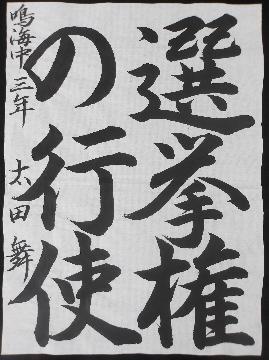 選挙権
の行使
鳴海中三年 太田舞